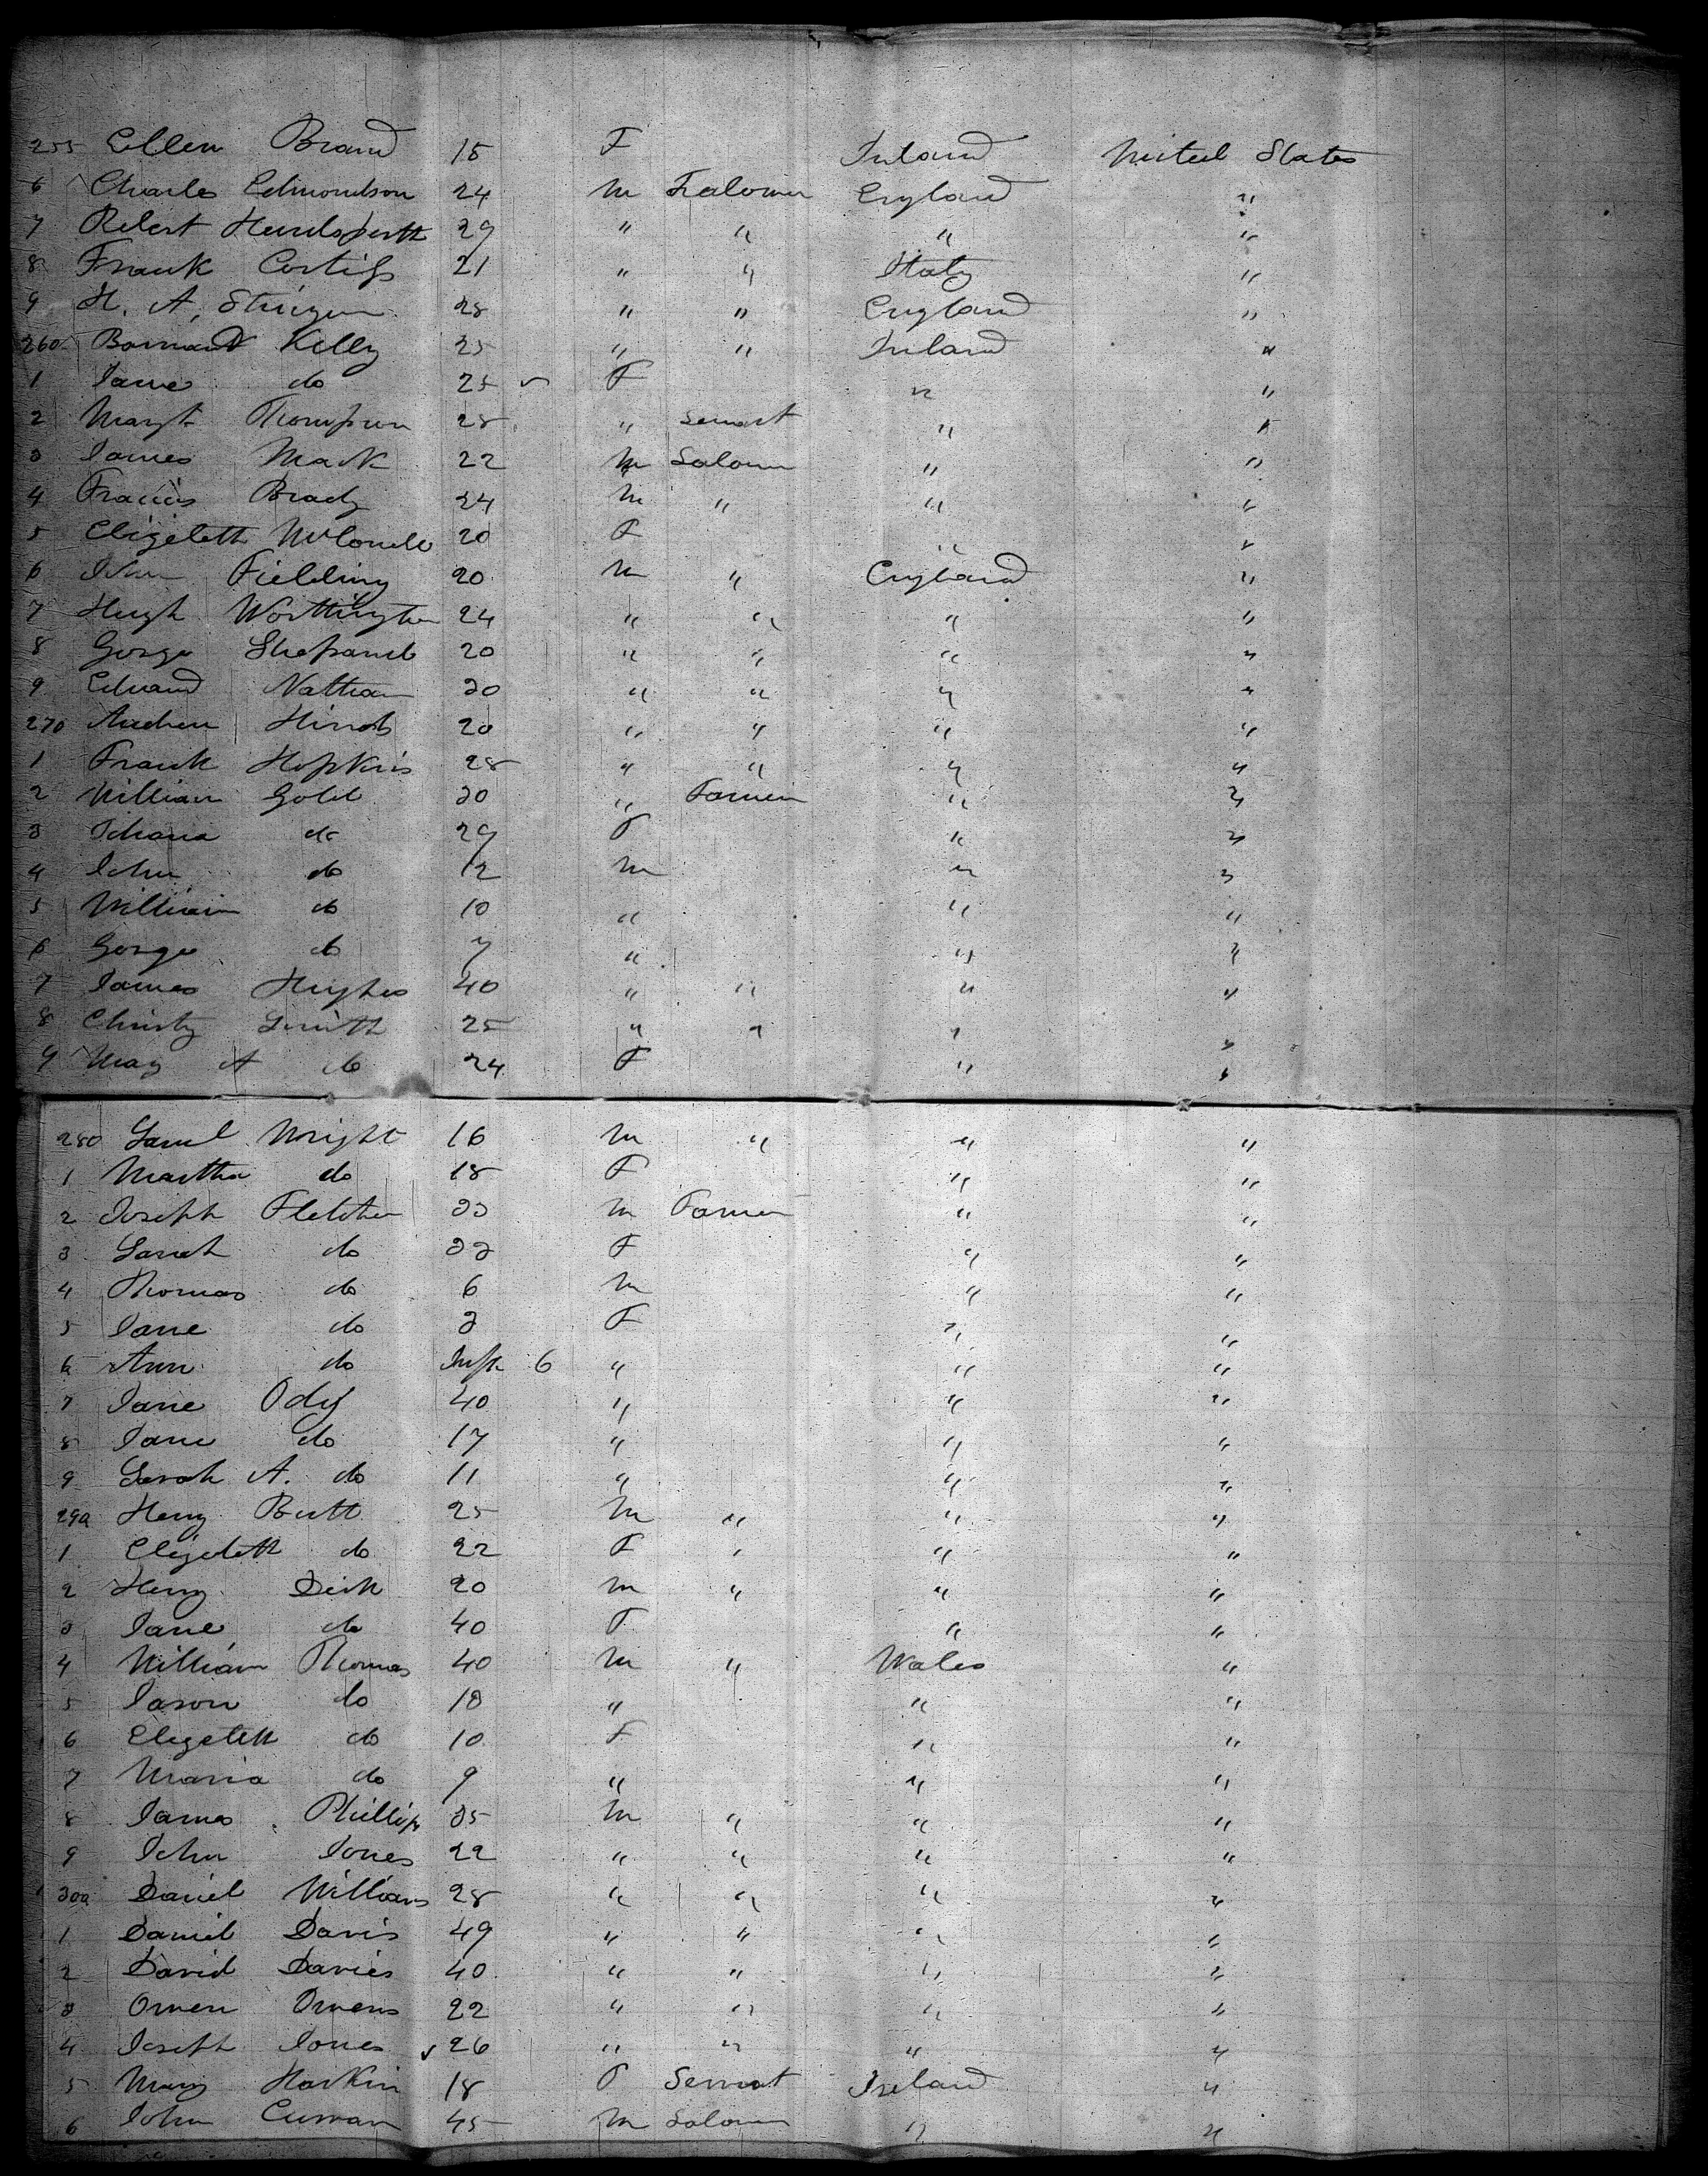 255 Ellen Brand 15 F Ireland United States
6 Charles Edmondson 24 M England "
7 Robert 29 " " " "
8 Frank 21 " " Italy "
9 H. A. 28 " " England "
260 Barnard Kelly 25 " " Ireland "
1 Jane do 25 F " "
2 Margt Thompson 28 " Servant " "
3 James Mack 22 M Laborer " "
4 Francis Brady 24 M " " "
5 Elizabeth 20 F " "
6 John Fielding 20 M " England "
7 Hugh Worthington 24 " " " "
8 George 20 " " " "
9 Edward Nathan 30 " " " "
270 Andrew 20 " " " "
1 Frank Hopkins 28 " " " "
2 William Gold 30 " Farmer " "
3 Johana do 29 F " "
4 John do 12 M " "
5 William do 10 " " "
6 George do 7 " " "
7 James Hughes 40 " " " "
8 Christy Smith 25 " " " "
9 Mary A do 24 F " "
280 Saml Wright 16 M " " "
1 Martha do 18 F " "
2 Joseph Fletcher 33 M Farmer " "
3 Sarah do 33 F " "
4 Thomas do 6 M " "
5 Jane do 3 F " "
6 Ann do 6 " " "
7 Jane Ody 40 " " "
8 Jane do 17 " " "
9 Sarah A. do 11 " " "
290 Henry Butt 25 M " " "
1 Elizabeth do 22 F " " "
2 Henry 20 M " " "
3 Jane do 40 F " "
4 William Thomas 40 M " Wales "
5 Jason do 18 " " "
6 Elizabeth do 10 F " "
7 Maria do 9 " " "
8 James Phillips 35 M " " "
9 John Jones 22 " " " "
300 Daniel Williams 28 " " " "
1 Daniel Davis 49 " " " "
2 David Davies 40 " " " "
3 Owen Owens 22 " " " "
4 Joseph Jones 26 " " " "
5 Mary Harkin 18 F Servant Ireland "
6 John Curran 45 M Laborer " "